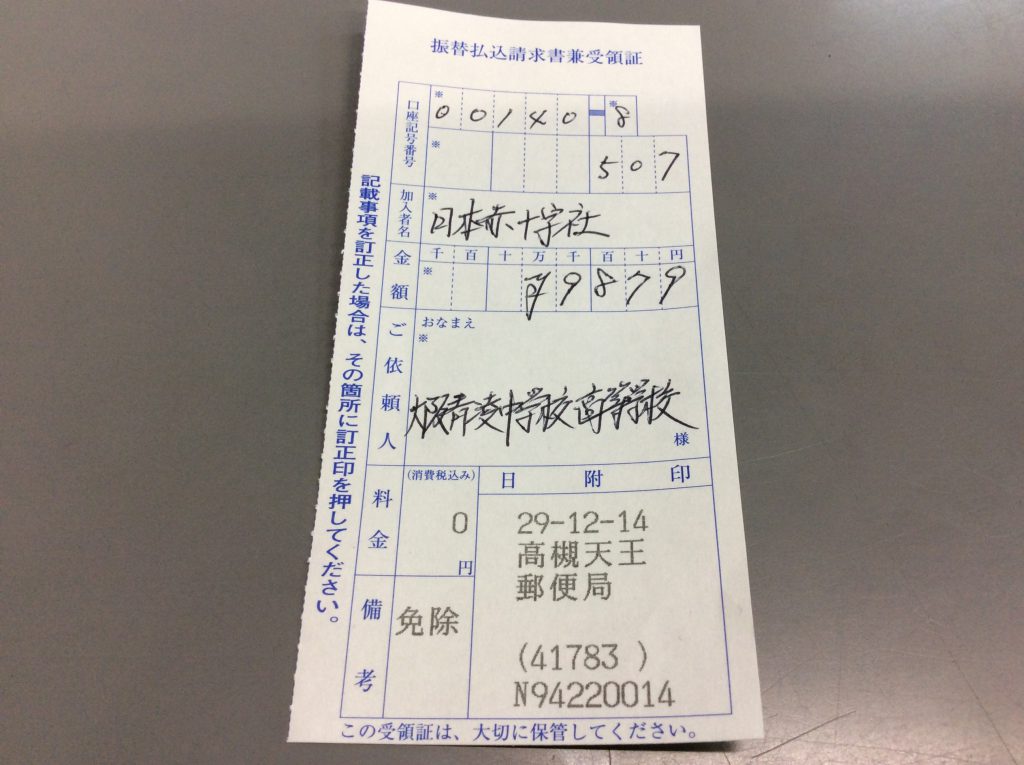 振替払込請求書兼受領証
口座記号番号
※ 00140-※8
※ 507
加入者名
※ 日本赤十字社
金額
千 百 十 万 千 百 十 円
※ ¥9879
ご依頼人
おなまえ
※
大阪青凌中学校高等学校
様
料金
(消費税込み)
0
円
日附印
29-12-14
高槻天王
郵便局
(41783 )
N94220014
備考
免除
記載事項を訂正した場合は、その箇所に訂正印を押してください。
この受領証は、大切に保管してください。